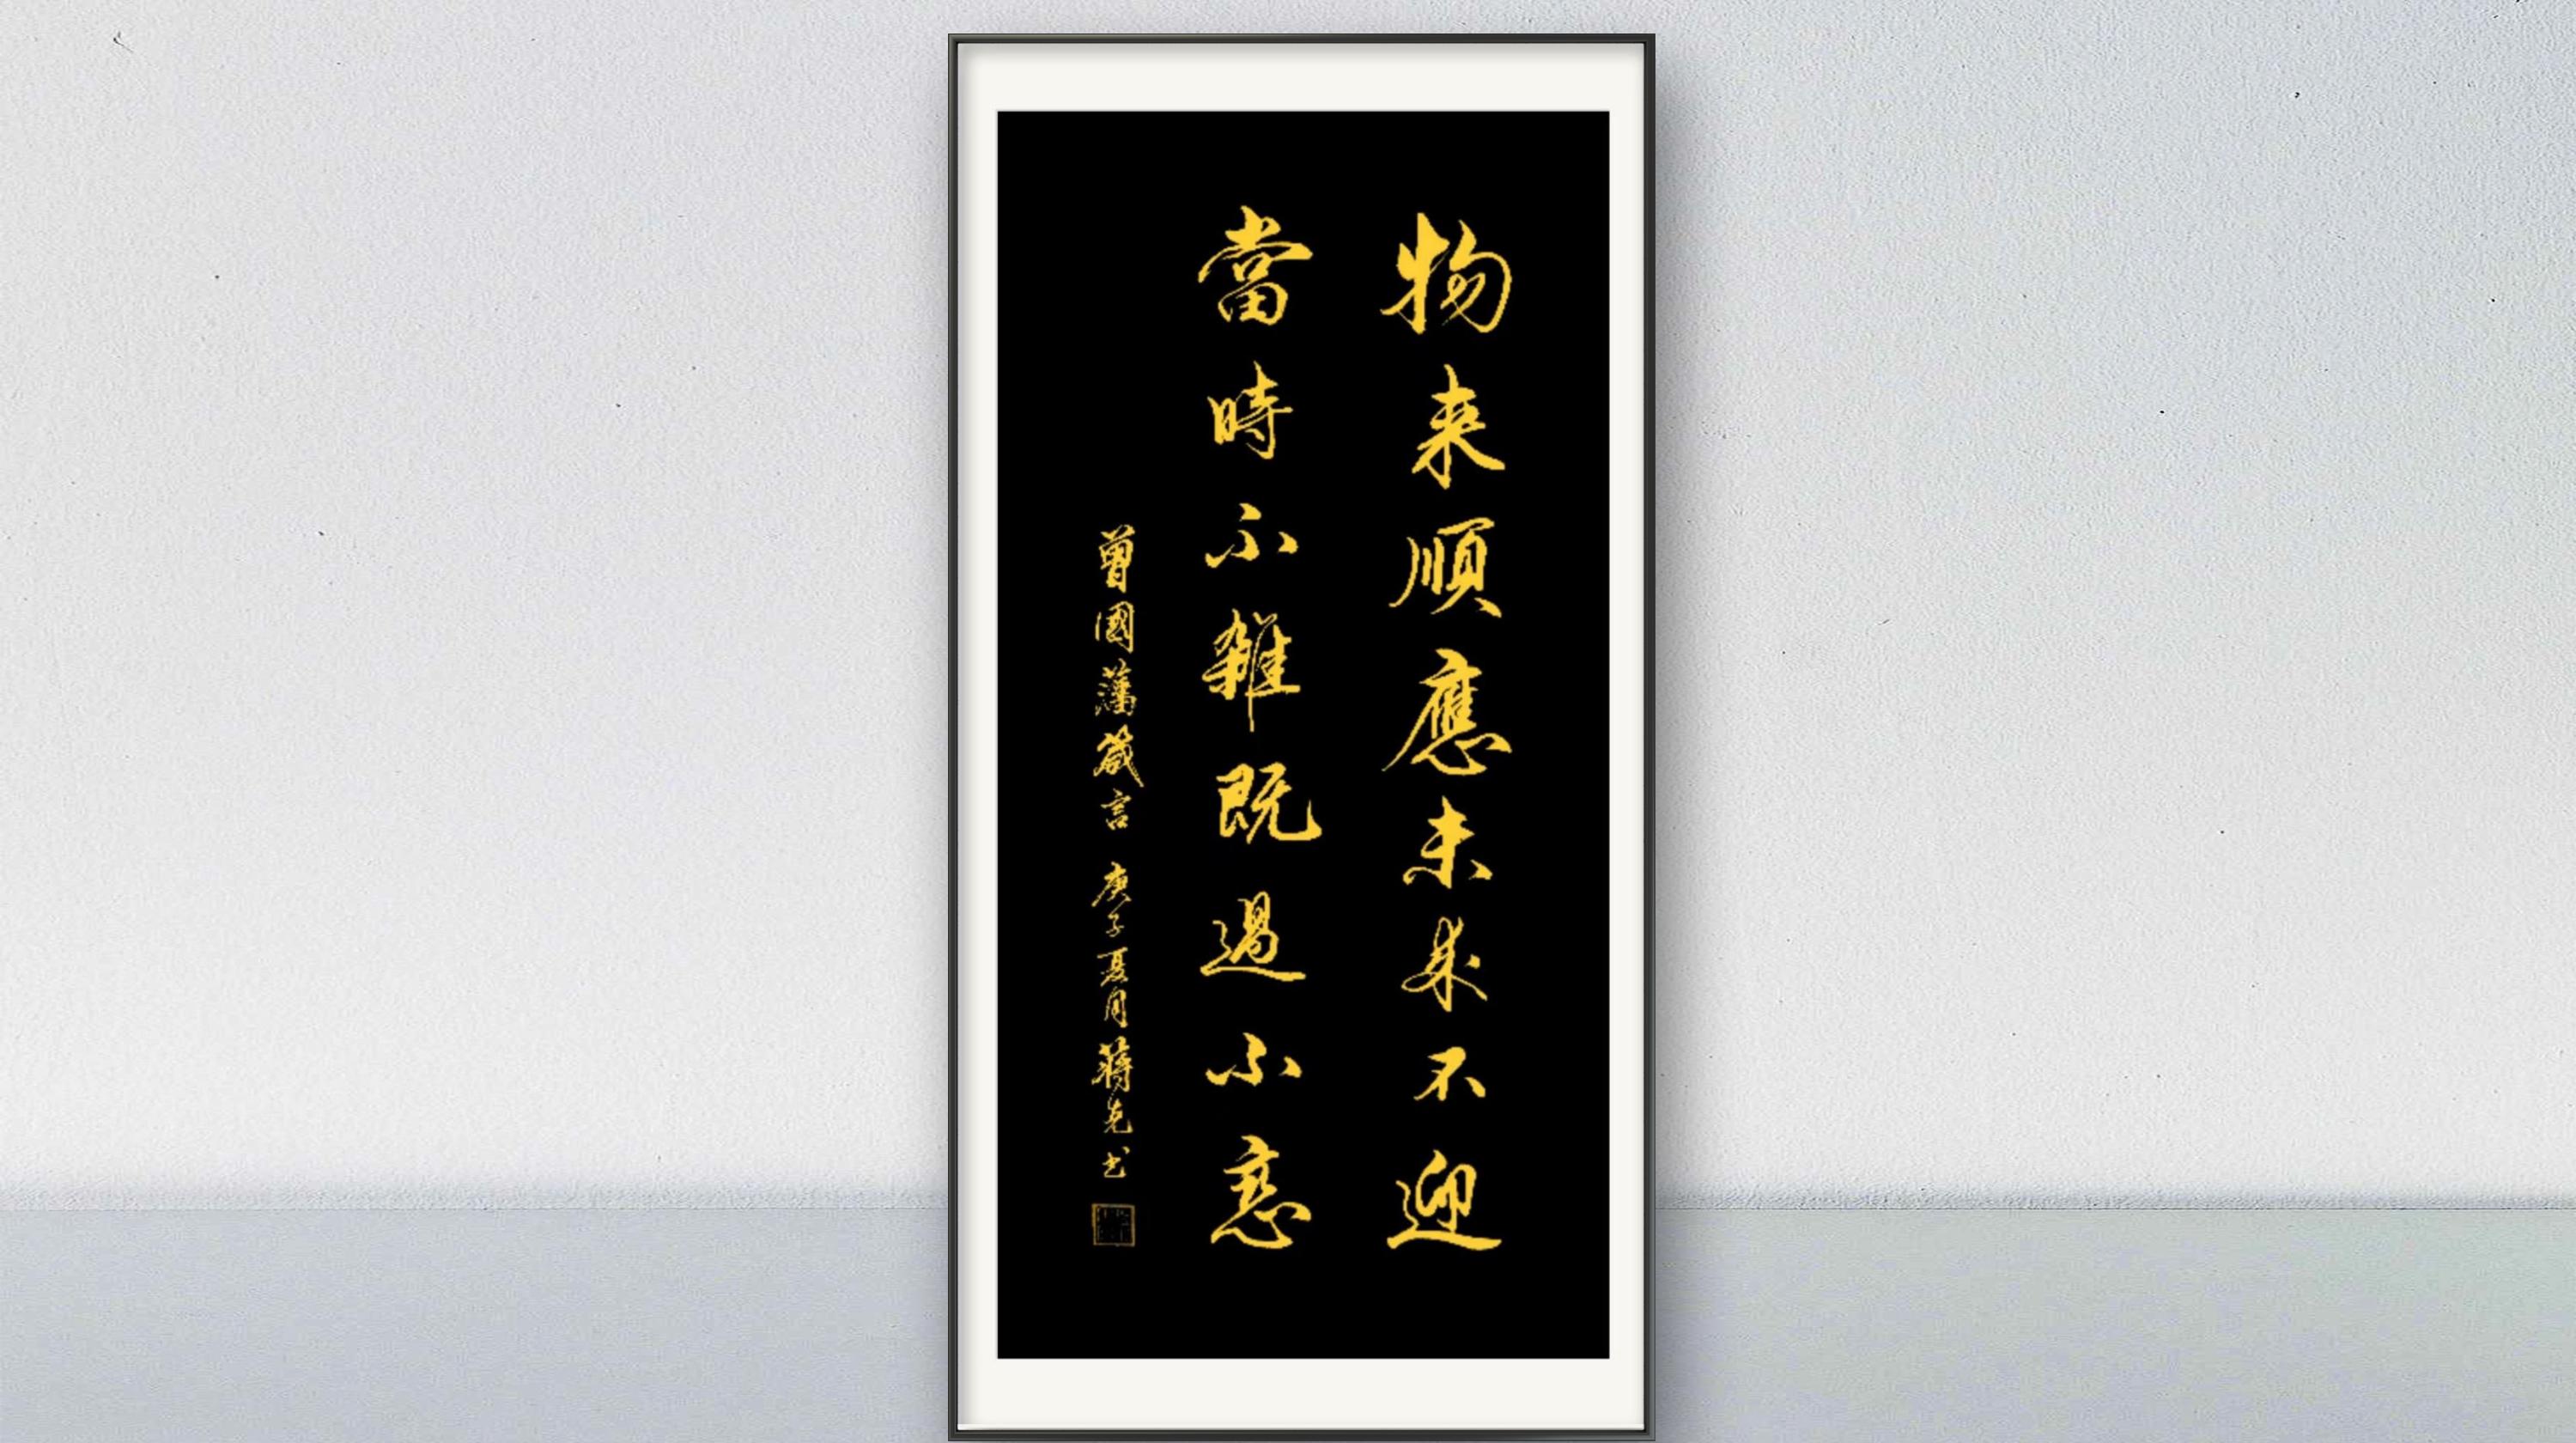 物来順應未来不迎
當時不雜既過不戀
曾國藩箴言 庚子夏月蔣先书